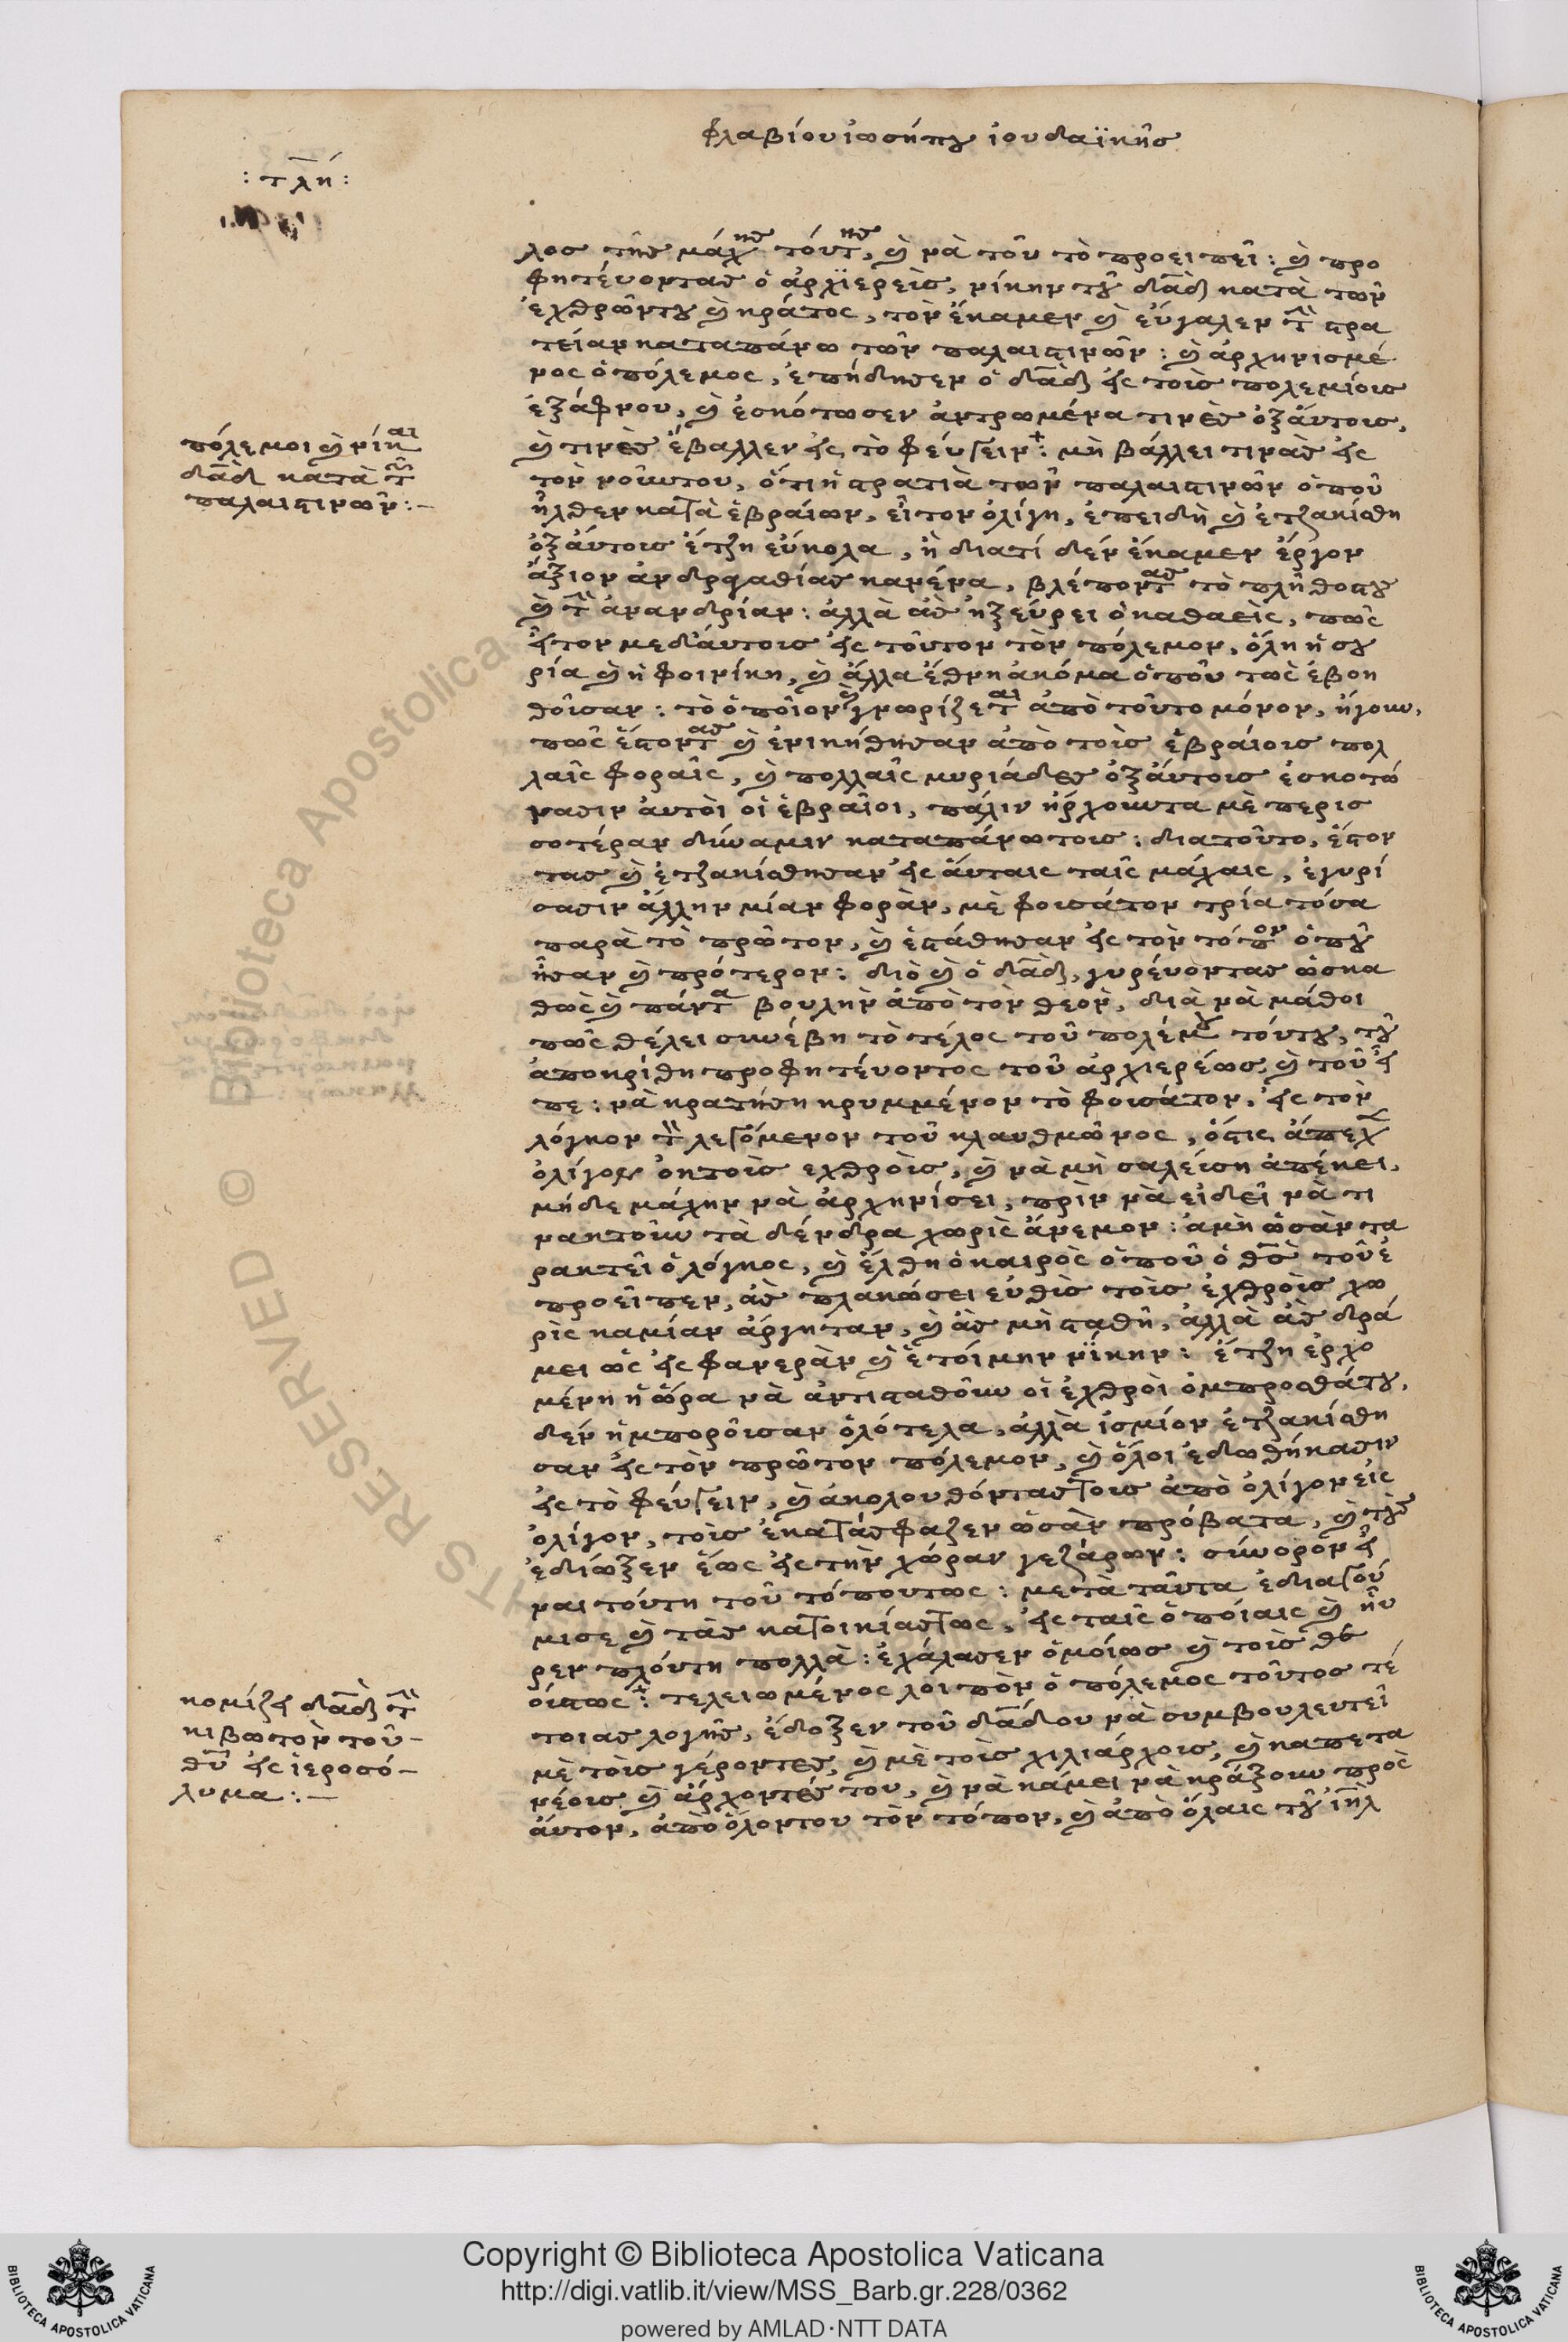 φλαβίου ἰωσήπου ἰουδαϊκῆσ
: τλή :
λοσ τῆσ μάχησ τούτησ, ϗ νὰ τοῦ τὸ προειπεῖ : ϗ προ
φητέυοντασ ὁ ἀρχϊερεὶσ, νίκην τοῦ δαδ κατὰ τῶν
ἐχθρῶντου ϗ κράτος, τὸν ἔκαμεν ϗ ἔυγαλεν τὴ στρα
τείαν καταπάνω τῶν παλαιστινῶν : ϗ ἀρχηνισμέ
νος ὁ πόλεμος, ἐπήδησεν ὁ δαδ εἰς τοὶσ πολεμίοισ
ἐξάφνου, ϗ ἐσκότωσεν ἀντρωμένα τινὲσ ὀξἄυτοισ,
ϗ τινὲσ ἔβαλλεν εἰς τὸ φέυγειν : μὴ βάλλει τινὰσ εἰς
τὸν νοῦντου, ὅτι ἡ στρατιὰ τῶν παλαιστινῶν ὁποῦ
ἦλθεν κατὰ ἑβραίων, εἶτον ὀλίγη, ἐπειδὴ ϗ ἐτζακίσθη
ὀξἄυτοισ ἔτζη ἔυκολα, ἢ διατί δὲν ἔκαμεν ἔργον
ἄξιον ἀνδραγαθίασ κανένα, βλέποντασ τὸ πλῆθοστου
ϗ τὴ ἀνανδρίαν : ἀλλὰ ἀσ ἠξέυρει ὁ καθαεὶς, πῶς
εἶτον μεδἄυτοισ εἰς τοῦτον τὸν πόλεμον, ὅλη ἡ συ
ρία ϗ ἡ φοινίκη, ϗ ἄλλα ἔθνη ἀκόμα ὁποῦ τωσ ἐβοη
θοῦσαν : τὸ ὁποῖον ϗ γνωρίζεται ἀπὸ τοῦτο μόνον, ἤγουν,
πῶς ἔστοντασ ϗ ἐνικήθησαν ἀπὸ τοὶσ ἑβραίοισ πολ
λαῖς φοραῖς, ϗ πολλαῖς μυριάδεσ ὀξἄυτοισ ἐσκοτώ
νασιν ἀυτοὶ οἱ ἑβραῖοι, πάλιν ἤρχουντα μὲ περισ
σοτέραν δύναμιν καταπάνωτοισ : διατοῦτο, ἔστον
τασ ϗ ἐτζακίσθησαν εἰς ἄυταις ταῖς μάχαις, ἐγυρί
σασιν ἄλλην μίαν φορὰν, μὲ φουσάτον τρία τόσα
παρὰ τὸ πρῶτον, ϗ ἐστάθησαν εἰς τὸν τόπον ὁποῦ
ἦσαν ϗ πρότερον : διὸ ϗ ὁ δαδ, γυρέυοντασ ὡσκα
θὼς ϗ πάντα βουλὴν ἀπὸ τὸν θεὸν, διὰ νὰ μάθοι
πῶς θέλει συνέβη τὸ τέλος τοῦ πολέμου τόυτου, τοῦ
ἀποκρίθη προφητέυοντος τοῦ ἀρχιερέωσ, ϗ τοῦ εἶ
πε : νὰ κρατήσῃ κρυμμένον τὸ φουσάτον, εἰς τὸν
λόγκον τὸ λεγόμενον τοῦ κλαυθμῶνος, ὅστις ἀπέχει
ὀλίγον ὀκτοὶσ εχθροὶσ, ϗ νὰ μὴ σαλέυσῃ ἀπέκει,
μήδε μάχην νὰ ἀρχηνίσει, πρὶν νὰ εἰδεῖ νὰ τι
νακτοῦν τὰ δένδρα χωρὶς ἄνεμον : ἀμὴ ὡσὰν τα
ρακτεῖ ὁ λόγκος, ϗ ἔλθη ὁ καιρὸς ὁποῦ ὁ θσ τοῦ ἐ
προεῖπεν, ἀσ πλακώσει ἐυθὶσ τοὶσ ἐχθροὶσ χω
ρὶς καμίαν ἄργηταν, ϗ ἀσ μὴ σταθῆ, ἀλλὰ ἀσ δρά
μει ὡς εἰς φανερὰν ϗ ἑτοίμην νίκην : ἔτζη ἐρχο
μένη ἡ ὥρα νὰ ἀντισταθοῦν οἱ ἐχθροὶ ὀμπροσθάτου,
δὲν ἠμποροῦσαν ὁλότελα, ἀλλὰ ἰσμίον ἐτζακίσθη
σαν εἰς τὸν πρῶτον πόλεμον, ϗ ὅλοι ἐδωθήκασιν
εἰς τὸ φέυγειν, ϗ ἀκολουθόντασ τοισ ἀπὸ ὀλίγον εἰς
ὀλίγον, τοὶσ ἐκατάσφαζεν ὡσὰν πρόβατα, ϗ τοὺσ
ἐδιώξεν ἕως εἰς τὴν χώραν γεζάρων : σύνορον εἶ
ναι τόυτη τοῦ τόπουτως : μετὰ ταῦτα ἐδιαγού
μισε ϗ τὰσ κατοικίαστως, εἰς ταῖς ὁποίαις ϗ ηὗ
ρεν πλόυτη πολλὰ : ἐχάλασεν ὁμοίωσ ϗ τοὶσ θε
όυστως : τελειωμένος λοιπὸν ὁ πόλεμος τοῦτος τέ
τοιασ λογῆσ, ἐδοξεν τοῦ δαδου νὰ συμβουλευτεῖ
μὲ τοὶσ γέροντεσ, ϗ μὲ τοὶσ χιλιάρχοισ, ϗ καπετα
νέοισ ϗ ἄρχοντέσ του, ϗ νὰ κάμει νὰ κράξουν πρὸς
ἄυτον, ἀπὸ ὅλοντου τὸν τόπον, ϗ ἀπὸ ὅλαις τοῦ ἰηλ
πόλεμοι ϗ νίκαι
δαδ κατὰ τῶν
παλαιστινῶν : –
κομίζει δαδ τὴ
κιβωτὸν τοῦ –
θυ εἰς ἱεροσό –
λυμα : –
RESERVED © Biblioteca Apostolica
Copyright © Biblioteca Apostolica Vaticana
http://digi.vatlib.it/view/MSS_Barb.gr.228/0362
powered by AMLAD·NTT DATA
BIBLIOTECA APOSTOLICA VATICANA
BIBLIOTECA APOSTOLICA VATICANA